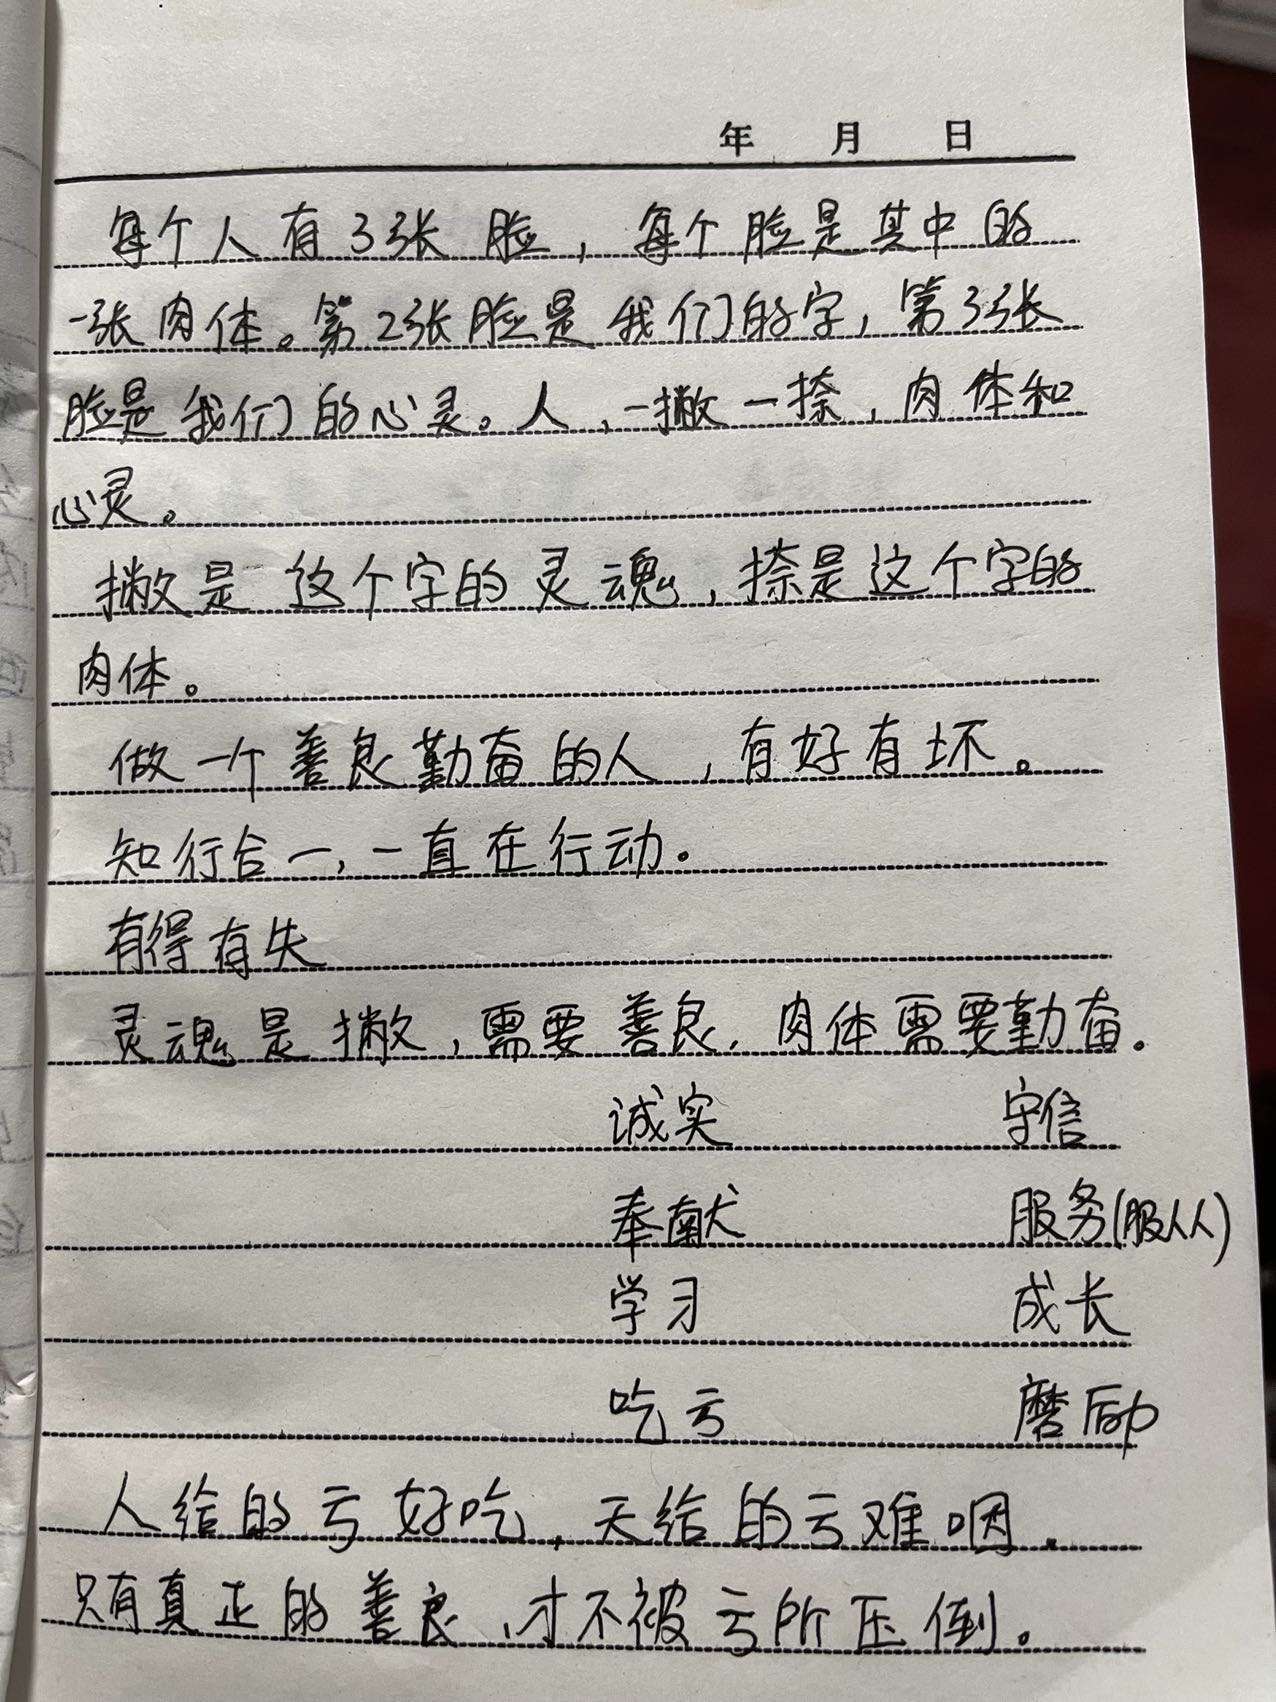 年 月 日
每个人有3张脸，每个脸是其中的
一张肉体。第2张脸是我们的字，第3张
脸是我们的心灵。人，一撇一捺，肉体和
心灵。
撇是这个字的灵魂，捺是这个字的
肉体。
做一个善良勤奋的人，有好有坏。
知行合一，一直在行动。
有得有失
灵魂是撇，需要善良，肉体需要勤奋。
诚实 守信
奉献 服务(服从人)
学习 成长
吃亏 磨励
人给的亏好吃，天给的亏难咽。
只有真正的善良，才不被亏所压倒。